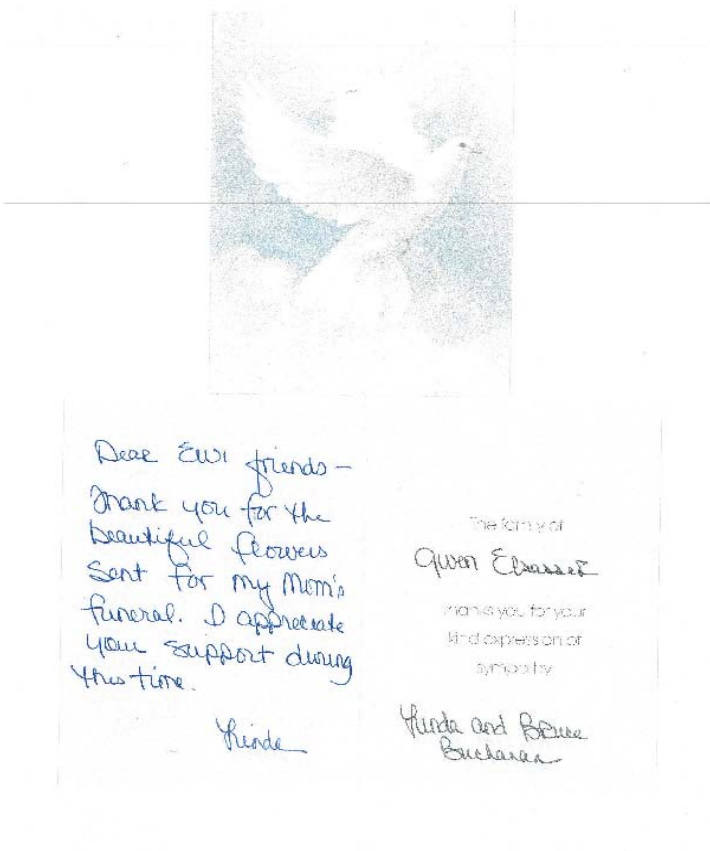 Dear EWI friends –
Thank you for the
beautiful flowers
sent for my Mom's
funeral. I appreciate
your support during
this time.
Linda
The family of
Gwen Elsasser
thanks you for your
kind expression of
sympathy
Linda and Bruce
Buchanan